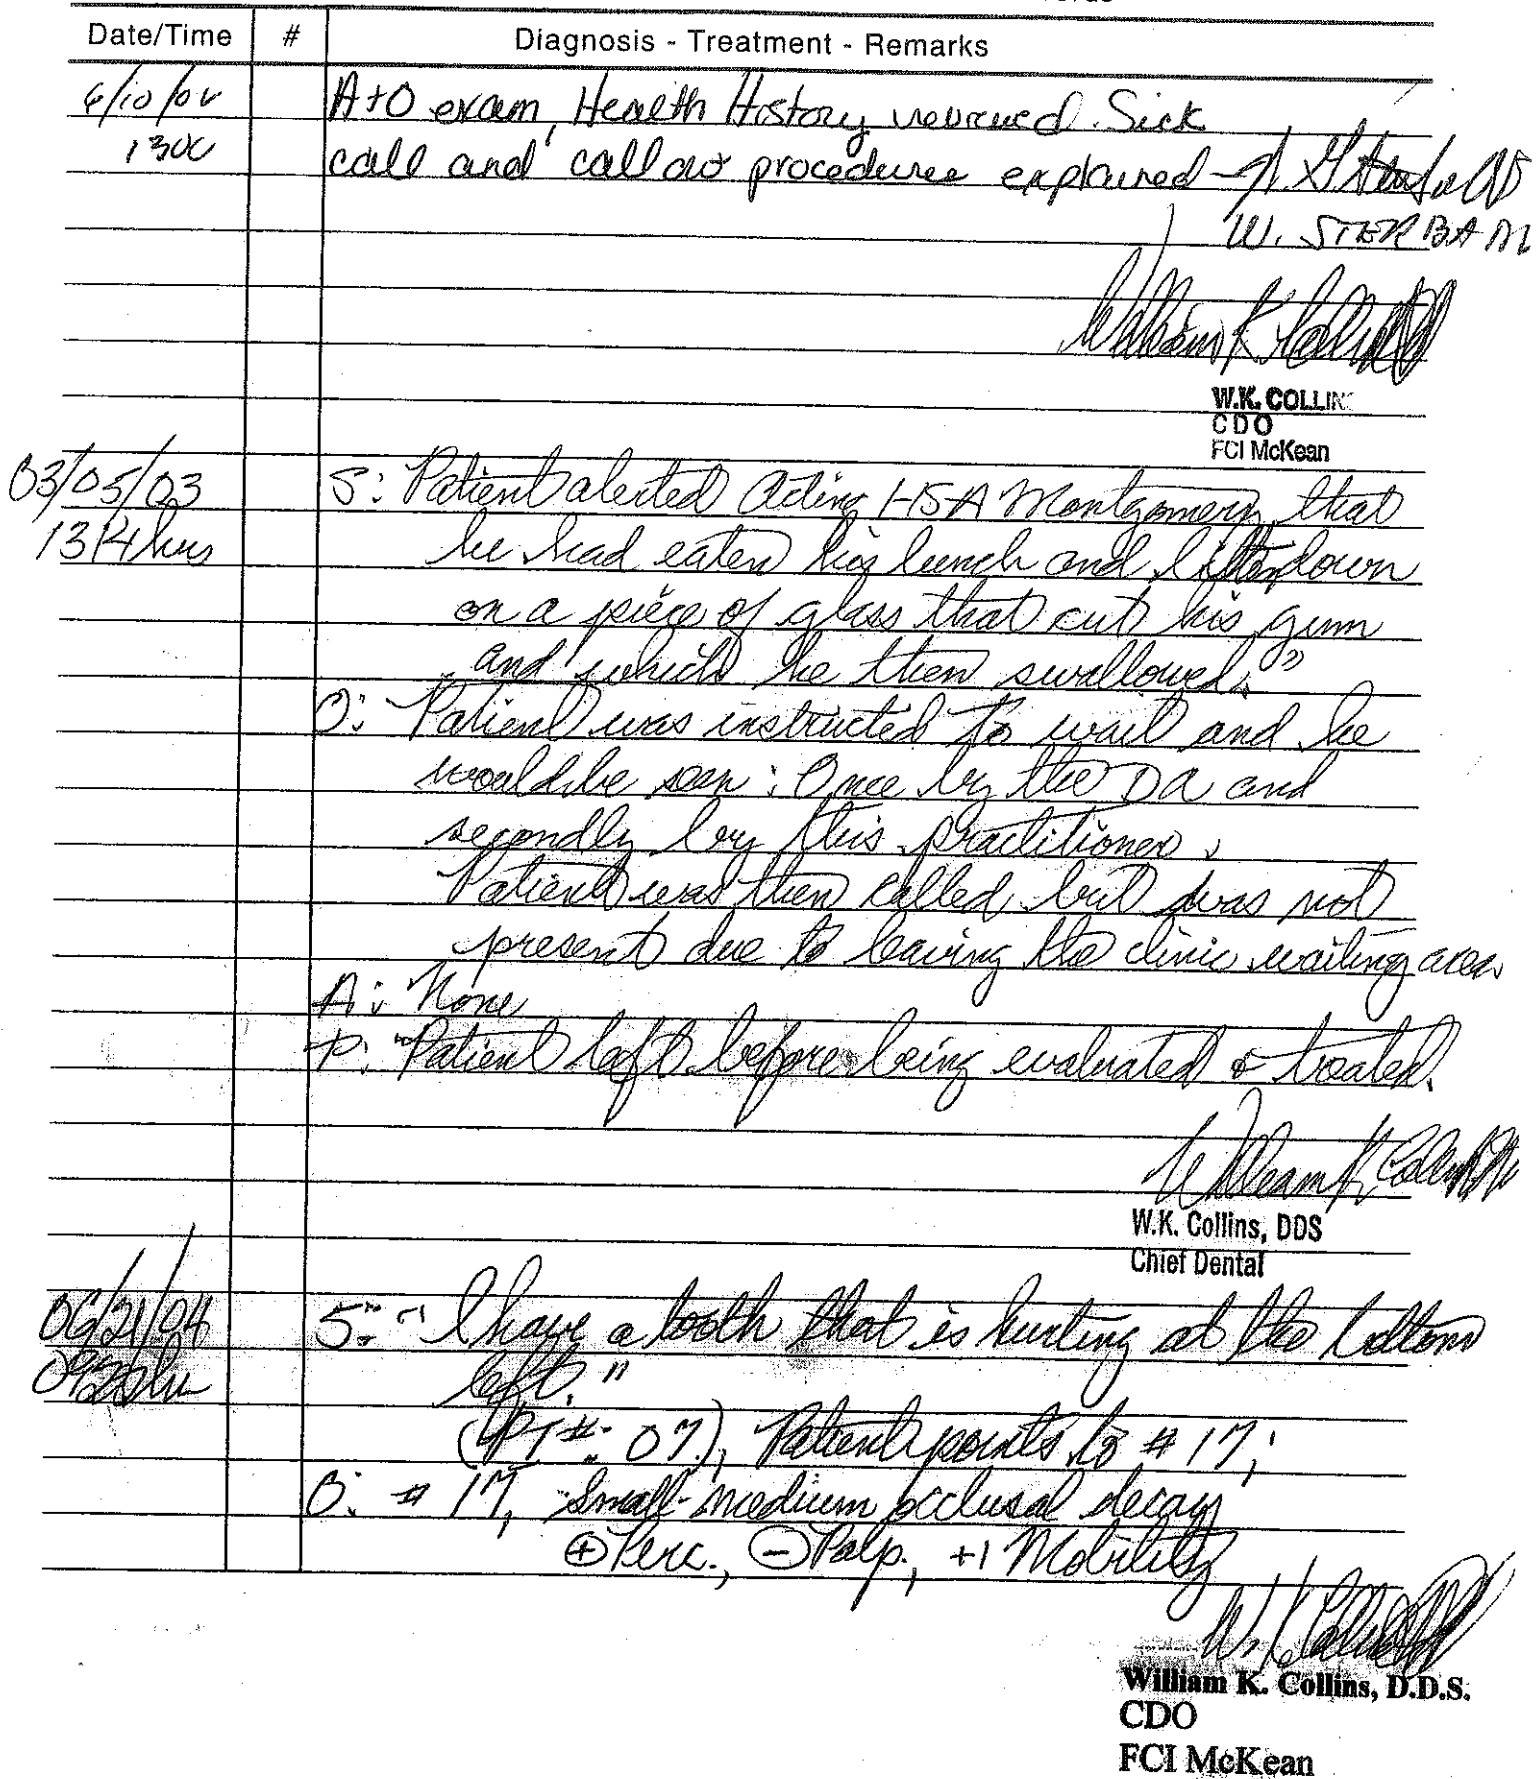 Date/Time # Diagnosis - Treatment - Remarks
6/10/02 A+O exam, Health History reviewed. Sick
1300 call and callout procedures explained
W. STERBA
W.K. COLLINS
CDO
FCI McKean
03/05/03 S: Patient alerted Acting HSA Montgomery that
1314hrs he had eaten his lunch and bitten down
on a piece of glass that cut his gum
and which he then swallowed."
O: Patient was instructed to wait and he
would be seen: Once by the DA and
secondly by this practitioner.
Patient was then called but was not
present due to leaving the clinic waiting area.
A: None
P: Patient left before being evaluated & treated.
William K. Collins
W.K. Collins, DDS
Chief Dental
06/21/04 S: "I have a tooth that is hurting at the bottom
left."
(PI#: 07), Patient points to #17;
O: #17, Small-medium occlusal decay
⊕ Perc., ⊖ Palp., +1 Mobility
William K. Collins, D.D.S.
CDO
FCI McKean